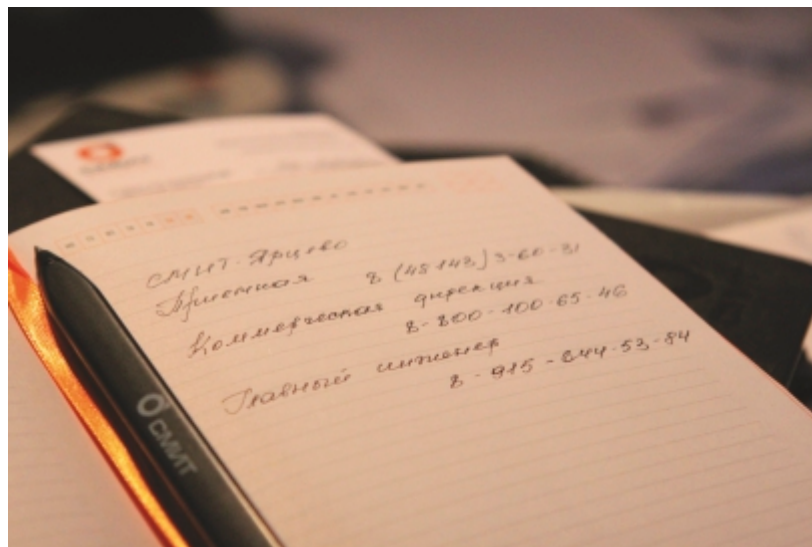 СМИТ-Ярцево
Приемная 8 (48143) 3-60-31
Коммерческая дирекция
8-800-100-65-46
Главный инженер
8-915-644-53-84
СМИТ